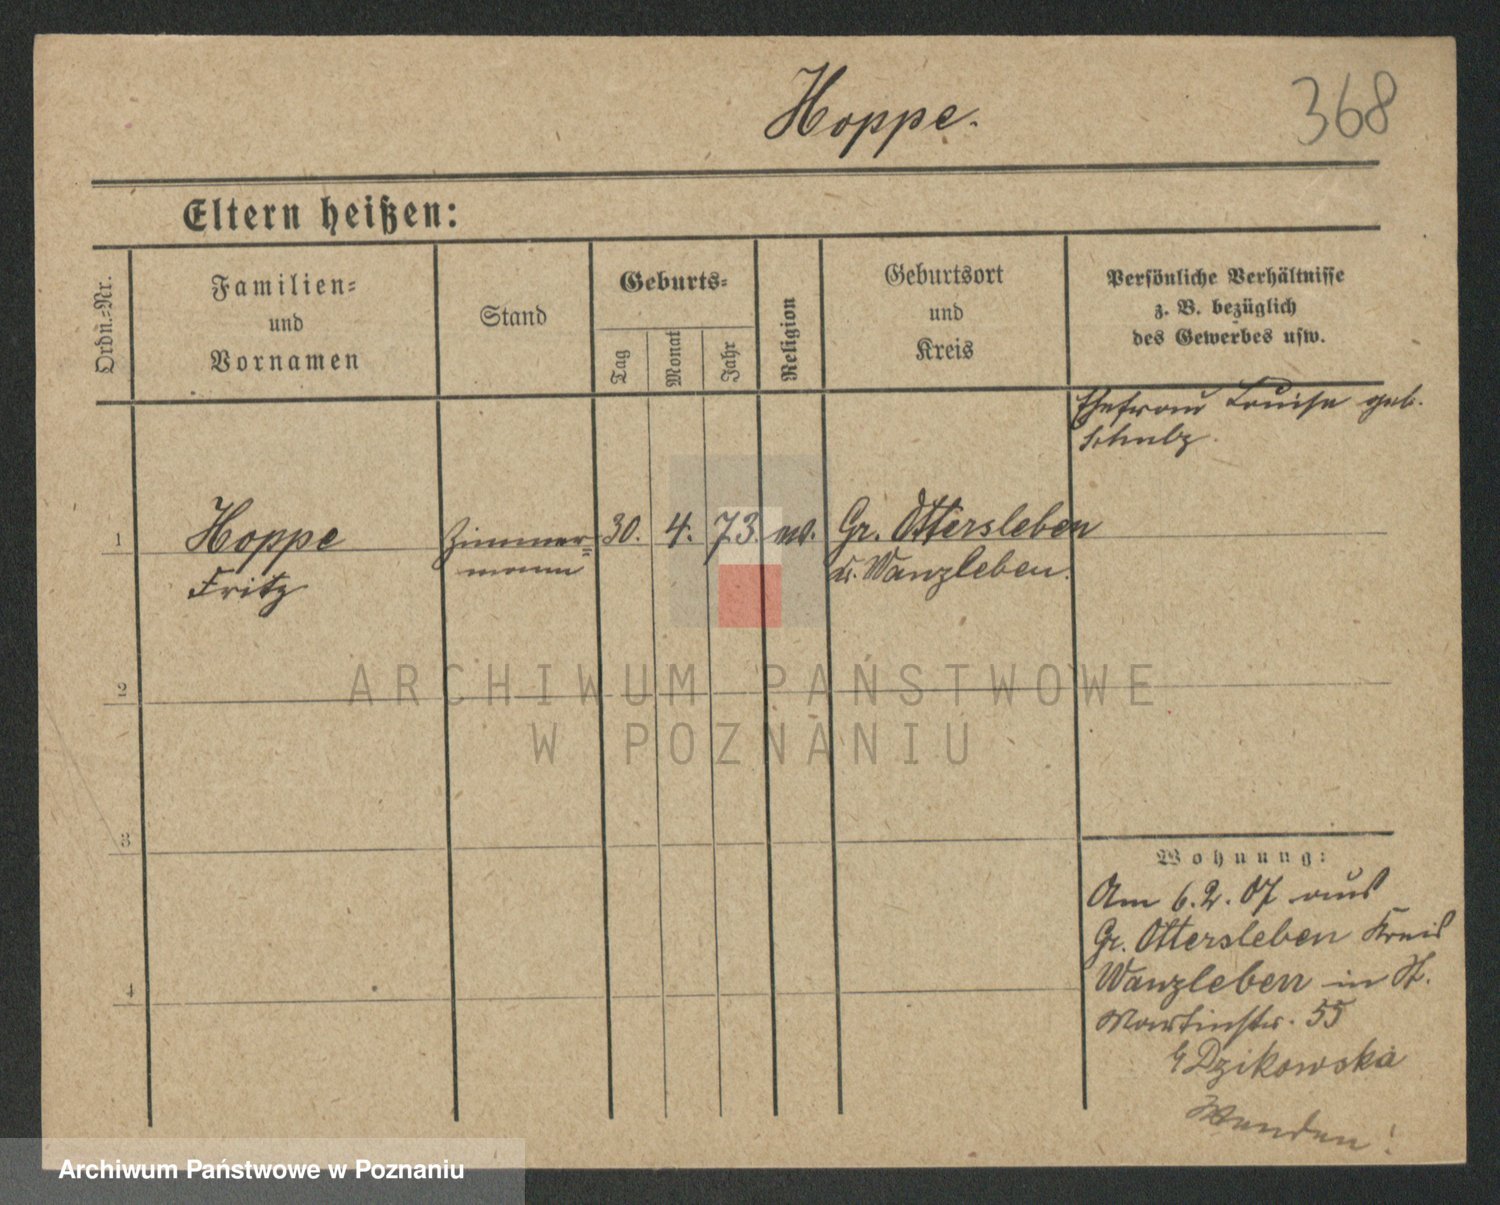 Hoppe.
368
Eltern heißen:
Ordn.-Nr.
Familien-
und
Vornamen
Stand
Geburts-
Tag
Monat
Jahr
Religion
Geburtsort
und
Kreis
Persönliche Verhältnisse
z. B. bezüglich
des Gewerbes usw.
Ehefrau Louise geb.
Schulz.
1
Hoppe
Fritz
Zimmer=
mann
30.
4.
73.
ev.
Gr. Ottersleben
Kr. Wanzleben.
2
3
4
Wohnung:
Am 6.2.07 aus
Gr. Ottersleben Kreis
Wanzleben in St.
Martinstr. 55
Dzikowska
Wenden!
ARCHIWUM PAŃSTWOWE
W POZNANIU
Archiwum Państwowe w Poznaniu